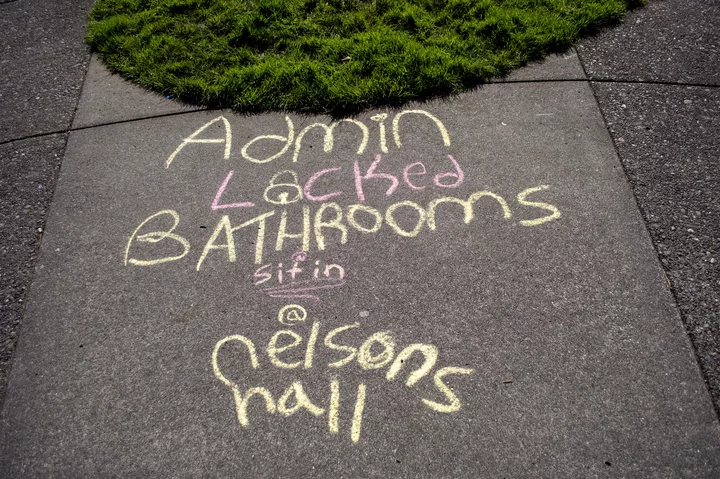 Admin
Locked
BATHROOMS
@
sit in
@
nelsons
hall